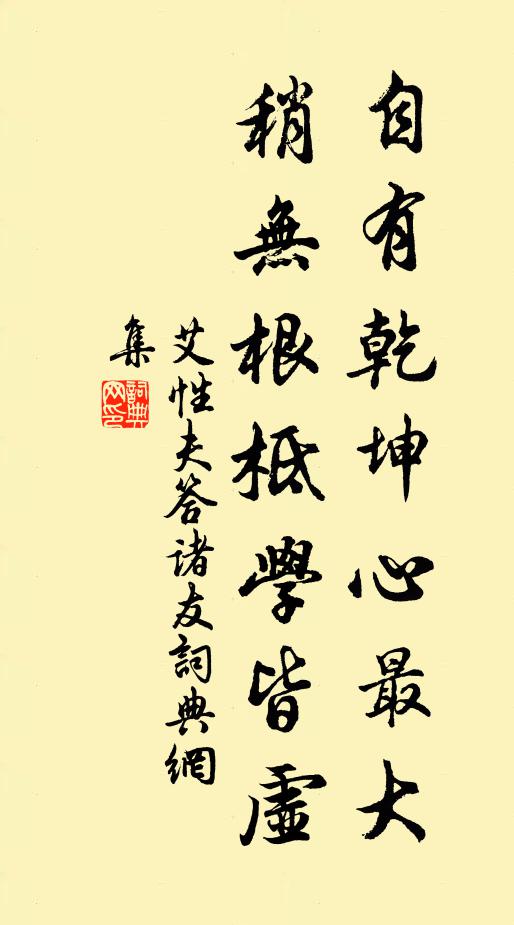 自有乾坤心最大
稍無根柢學皆虛
艾性夫答诸友詞典網
集
詞典
网印